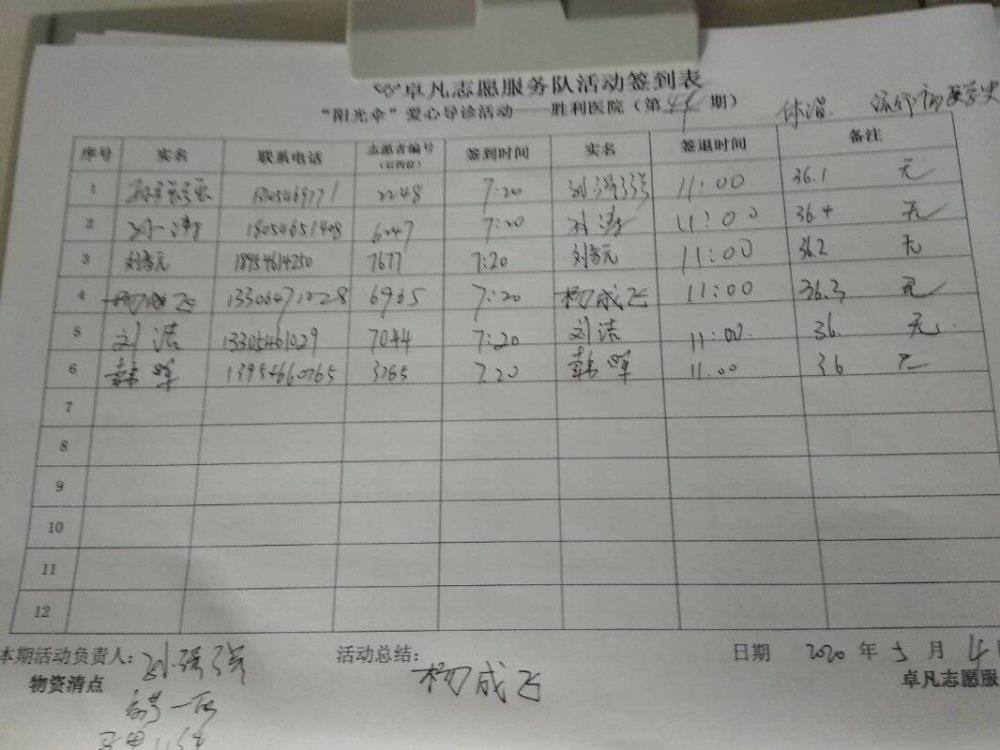 卓凡志愿服务队活动签到表
“阳光伞”爱心导诊活动——胜利医院（第44期） 体温 流行病学史
序号 实名 联系电话 志愿者编号（后四位） 签到时间 实名 签退时间 备注
1 2248 7:20 刘强强 11:00 36.1 无
2 刘涛 18054651408 6247 7:20 刘涛 11:00 36.4 无
3 18954614250 7677 7:20 11:00 36.2 无
4 杨成飞 13306471228 6965 7:20 杨成飞 11:00 36.3 无
5 刘洁 13305461029 7044 7:20 刘洁 11:00 36. 无
6 韩晖 13954660765 3765 7.20 韩晖 11.00 36
7
8
9
10
11
12
本期活动负责人：刘强强 活动总结：杨成飞 日期 2020年5月4
物资清点 卓凡志愿服